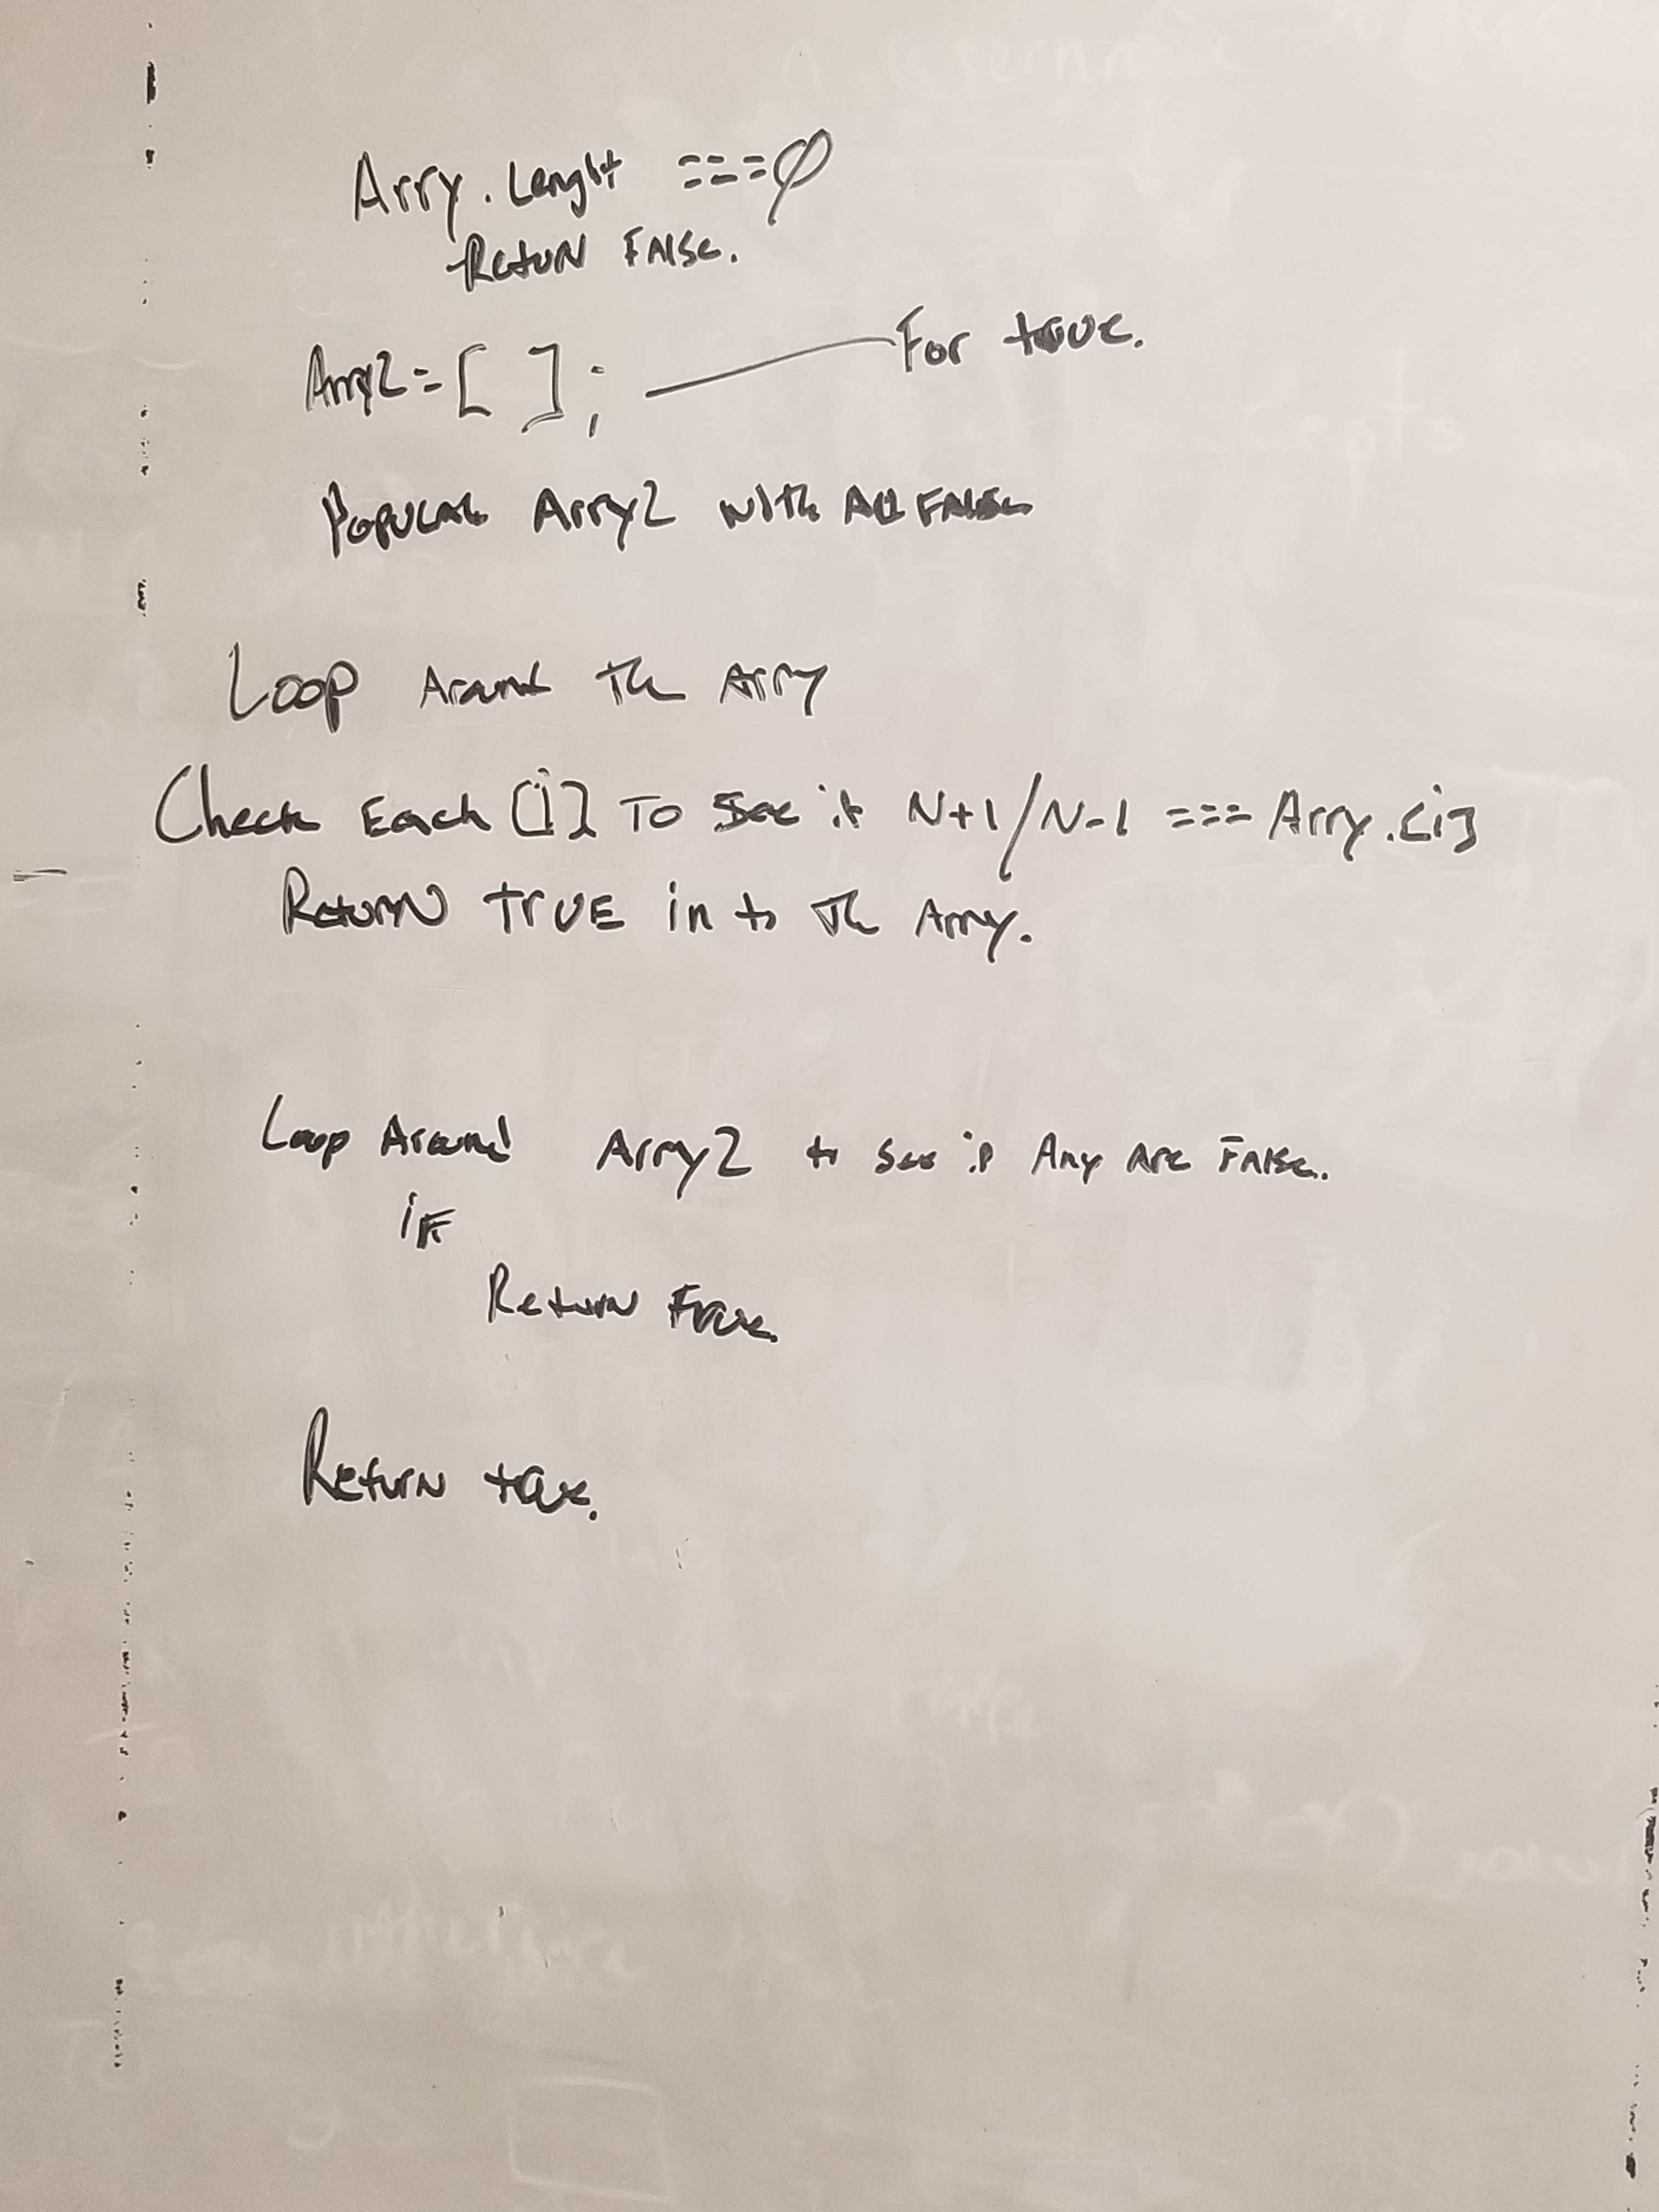 Arry.Lenght ===0
Retun False.
Arry2=[ ]; For true.
Populate Arry2 with All False
Loop Around The Arry
Check Each [i] To See if N+1/N-1 === Arry.[i]
Return TRUE in to The Arry.
Loop Around Arry2 to see if Any Are False.
iF
Return False.
Return true.